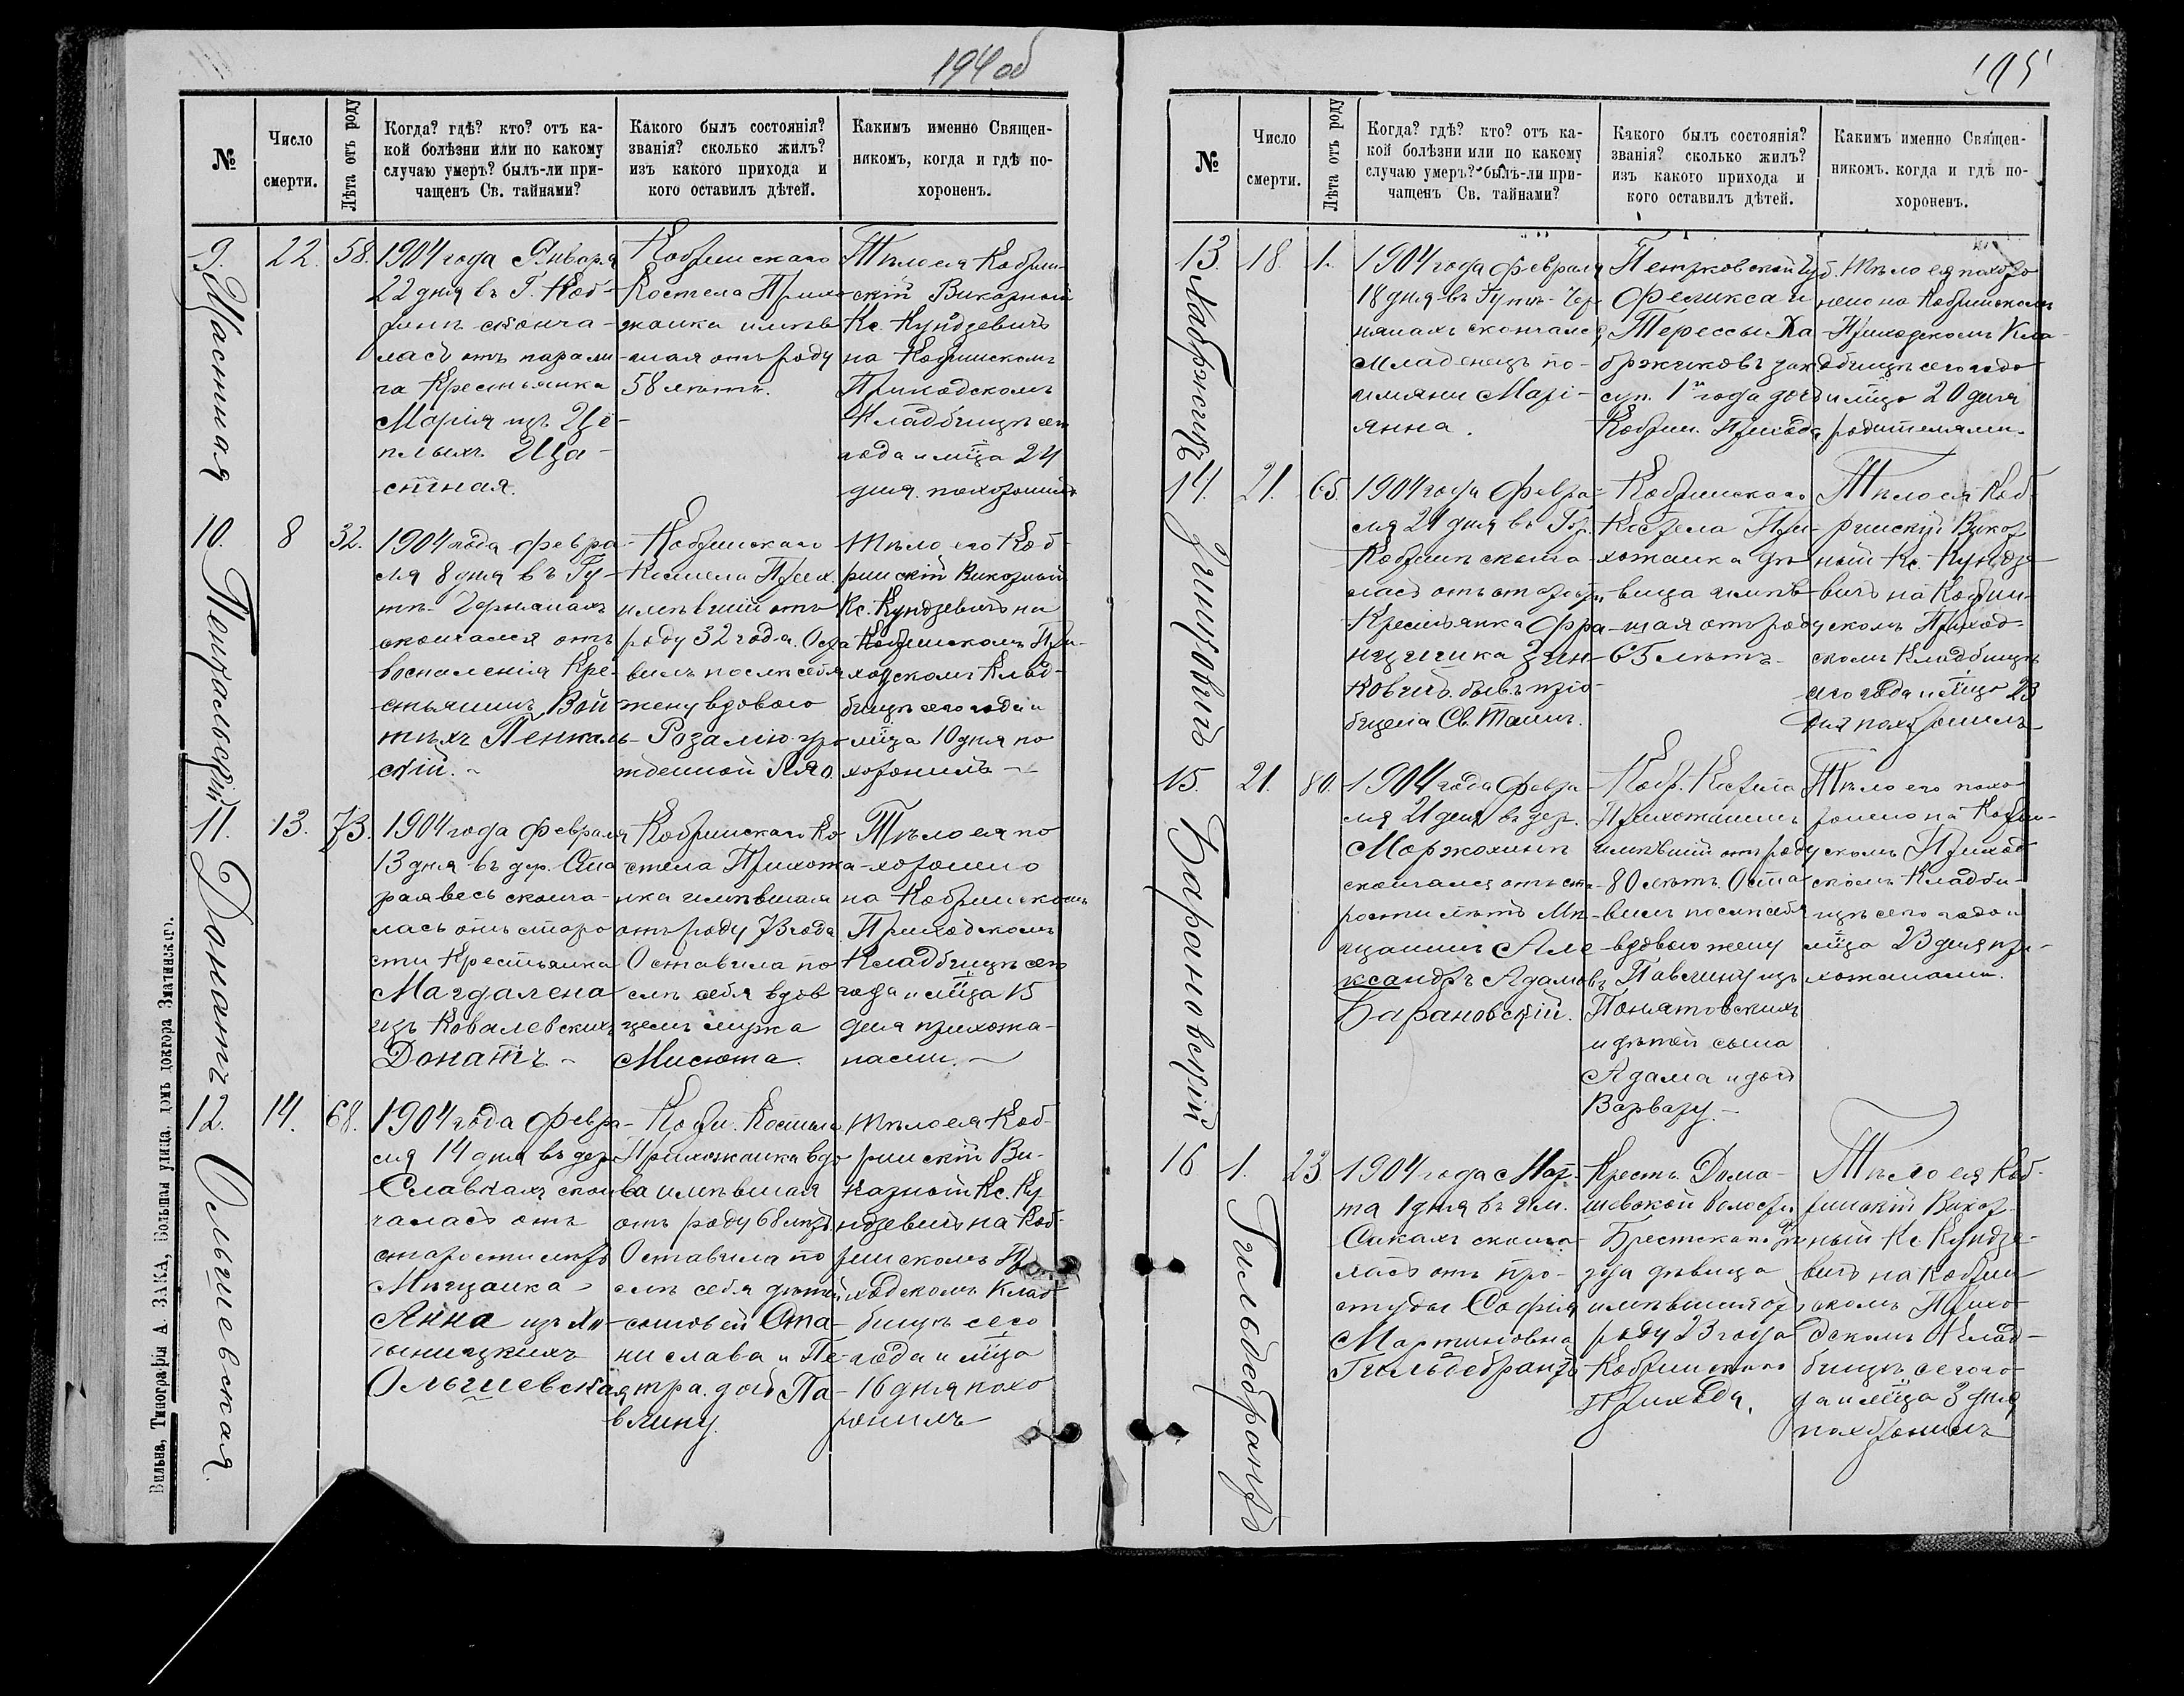 194об
№
Число
смерти.
Лѣта отъ роду
Когда? гдѣ? кто? отъ ка-
кой болѣзни или по какому
случаю умеръ? былъ-ли при-
чащенъ Св. тайнами?
Какого былъ состоянія?
званія? сколько жилъ?
изъ какого прихода и
кого оставилъ дѣтей.
Какимъ именно Священ-
никомъ, когда и гдѣ по-
хороненъ.
9.
Щастная
22.
58.
1904 года Января
22 дня въ Г. Коб-
ринѣ сконча-
лась отъ парали-
ча Крестьянка
Марія изъ Це-
плыхъ Ща-
стная.
Кобринскаго
Костела Прихо-
жанка имѣв-
шая отъ роду
58 лѣтъ.
Тѣло ея Кобрин-
скій Викарный
Кс. Кундзевичъ
на Кобринскомъ
Приходскомъ
Кладбищѣ сего
года и мѣца 24
дня похоронилъ
10.
Пенкальскій
8
32.
1904 года Февра-
ля 8 дня въ Гу-
тѣ-Чернянахъ
скончался отъ
воспаленія Кре-
стьянинъ Вой-
тѣхъ Пенкаль-
скій.
Кобринскаго
Костела Прих.
имѣвшій отъ
роду 32 года. Оста-
вилъ послѣ себя
жену вдовою
Розалію уро-
жденной
Тѣло его Коб-
ринскій Викарный
Кс. Кундзевичъ на
Кобринскомъ При-
ходскомъ Клад-
бищѣ сего года и
мѣца 10 дня по-
хоронилъ
11.
Донатъ
13.
73.
1904 года Февраля
13 дня въ дер. Ста-
раявесь сконча-
лась отъ старо-
сти Крестьянка
Магдалена
изъ Ковалевскихъ
Донатъ
Кобринскаго Ко-
стела Прихожа-
нка имѣвшая
отъ роду 73 года
Оставила по-
слѣ себя вдов-
цемъ мужа
Мисюта.
Тѣло ея по-
хоронено
на Кобринскомъ
Приходскомъ
Кладбищѣ сего
года и мѣца 15
дня прихожа-
нами.
12.
Ольшевская.
14.
68.
1904 года Февра-
ля 14 дня въ дер.
Славкахъ скон-
чалась отъ
старости лѣтъ
Мѣщанка
Анна изъ
Ольшевская
Кобр. Костела
Прихожанка вдо-
ва имѣвшая
отъ роду 68 лѣтъ.
Оставила по-
слѣ себя дѣтей
сыновей Ста-
нислава и Пе-
тра. дочь Па-
влину.
Тѣло ея Коб-
ринскій Ви-
карный Кс. Ку-
ндзевичъ на Коб-
ринскомъ При-
ходскомъ Клад-
бищѣ сего
года и мѣца
16 дня похо-
ронилъ
Вильна, Типографія А. ЗАКА, Большая улица, домъ доктора Знаминскаго.
195
№
Число
смерти.
Лѣта отъ роду
Когда? гдѣ? кто? отъ ка-
кой болѣзни или по какому
случаю умеръ? былъ-ли при-
чащенъ Св. тайнами?
Какого былъ состоянія?
званія? сколько жилъ?
изъ какого прихода и
кого оставилъ дѣтей.
Какимъ именно Священ-
никомъ. когда и гдѣ по-
хороненъ.
13.
18.
1.
1904 года Февраля
18 дня въ Гутѣ-Чер-
нянахъ скончался
младенецъ по-
имяни Марі-
янна.
Петрковской Губ.
Феликса и
Терессы
зак.
суп. 1 года дочь
Кобрин. Прихода
Тѣло ея похоро-
нено на Кобринскомъ
Приходскомъ Кла-
дбищѣ сего года
и мѣца 20 дня
родителями.
14.
Зинковичъ
21.
65.
1904 года Февра-
ля 21 дня въ Гор.
Кобринѣ сконча-
лась отъ старости
Крестьянка Фра-
нцишка Зин-
ковичъ бывъ прiо-
бщена Св. Таинъ.
Кобринскаго
Костела При-
хожанка дѣ-
вица имѣв-
шая отъ роду
65 лѣтъ.
Тѣло ея Коб-
ринскій Викар-
ный Кс. Кундзе-
вичъ на Кобрин-
скомъ Приход-
скомъ Кладбищѣ
сего года и мѣца 23
дня похоронилъ
15.
Барановскій
21.
80.
1904 года Февра-
ля 21 дня въ дер.
скончался отъ ста-
рости лѣтъ Мѣ-
щанинъ Але-
ксандръ Адамовъ
Барановскій.
Кобр. Костела
Прихожанинъ
имѣвшій отъ роду
80 лѣтъ. Оста-
вилъ послѣ себя
вдовою жену
Павлину изъ
Понятовскихъ
и дѣтей сына
Адама и дочь
Варвару.
Тѣло его похо-
ронено на Кобрин-
скомъ Приход-
скомъ Кладби-
щѣ сего года и
мѣца 23 дня при-
хожанами.
16
Гильдебрандъ
1.
23
1904 года Мар-
та 1 дня въ им.
сконча-
лась отъ про-
студы Софія
Мартиновна
Гильдебрандъ
Крест. Дома-
чевской волости
Брестскаго уѣ-
зда дѣвица
имѣвшая отъ
роду 23 года
Кобринскаго
Прихода.
Тѣло ея Коб-
ринскій Викар-
ный Кс. Кундзе-
вичъ на Кобрин-
скомъ Прихо-
дскомъ Клад-
бищѣ сего го-
да и мѣца 3 дня
похоронилъ